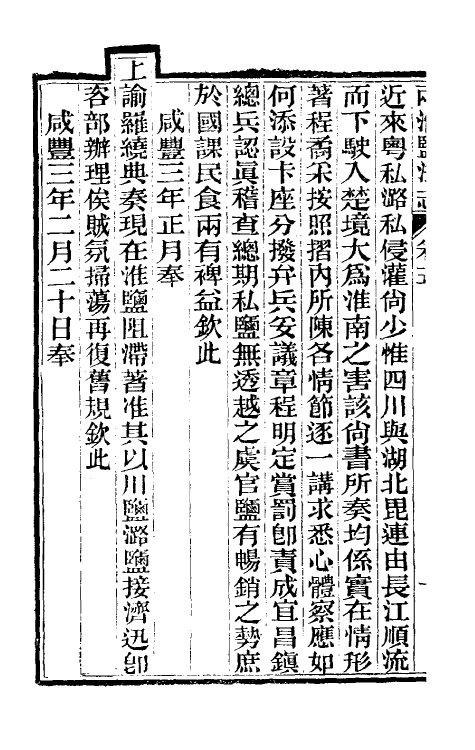 兩淮鹽法志 卷五
近來粵私潞私侵灌尙少惟四川與湖北毘連由長江順流
而下駛入楚境大爲淮南之害該尙書所奏均係實在情形
著程矞采按照摺內所陳各情節逐一講求悉心體察應如
何添設卡座分撥弁兵妥議章程明定賞罰卽責成宜昌鎭
總兵認眞稽查總期私鹽無透越之虞官鹽有暢銷之勢庶
於國課民食兩有裨益欽此
咸豐三年正月奉
上諭羅繞典奏現在淮鹽阻滯著准其以川鹽潞鹽接濟迅卽
咨部辦理俟賊氛掃蕩再復舊規欽此
咸豐三年二月二十日奉